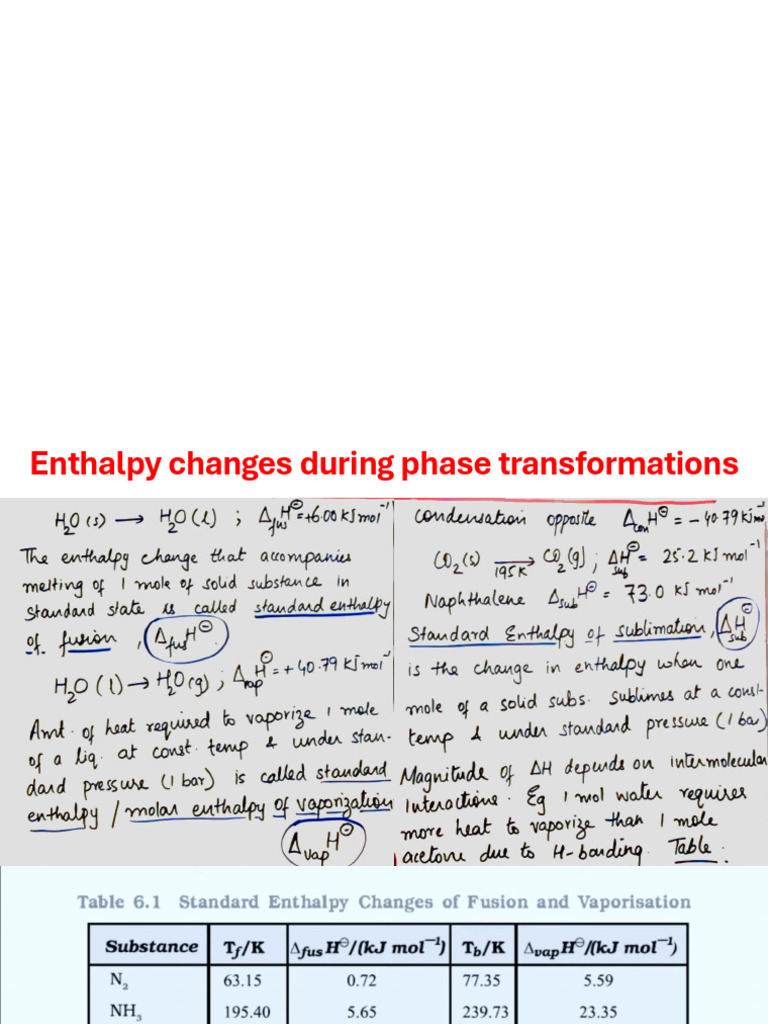 Enthalpy changes during phase transformations
H₂O(s) → H₂O(l) ; ΔfusH⊖ = +6.00 kJ mol⁻¹
The enthalpy change that accompanies
melting of 1 mole of solid substance in
standard state is called standard enthalpy
of fusion, ΔfusH⊖
H₂O(l) → H₂O(g) ; ΔvapH⊖ = +40.79 kJ mol⁻¹
Amt. of heat required to vaporize 1 mole
of a liq. at const. temp & under stan-
dard pressure (1 bar) is called standard
enthalpy / molar enthalpy of vaporization
ΔvapH⊖
condensation opposite ΔconH⊖ = -40.79 kJ mo
CO₂(s) → CO₂(g) ; ΔsubH⊖ = 25.2 kJ mol⁻¹
195K
Naphthalene ΔsubH⊖ = 73.0 kJ mol⁻¹
Standard Enthalpy of sublimation, ΔsubH⊖
is the change in enthalpy when one
mole of a solid subs. sublimes at a const.
temp & under standard pressure (1 bar)
Magnitude of ΔH depends on intermolecular
interactions. Eg 1 mol water requires
more heat to vaporize than 1 mole
acetone due to H-bonding. Table.
Table 6.1 Standard Enthalpy Changes of Fusion and Vaporisation
Substance Tf/K ΔfusH⊖/(kJ mol⁻¹) Tb/K ΔvapH⊖/(kJ mol⁻¹)
N₂ 63.15 0.72 77.35 5.59
NH₃ 195.40 5.65 239.73 23.35